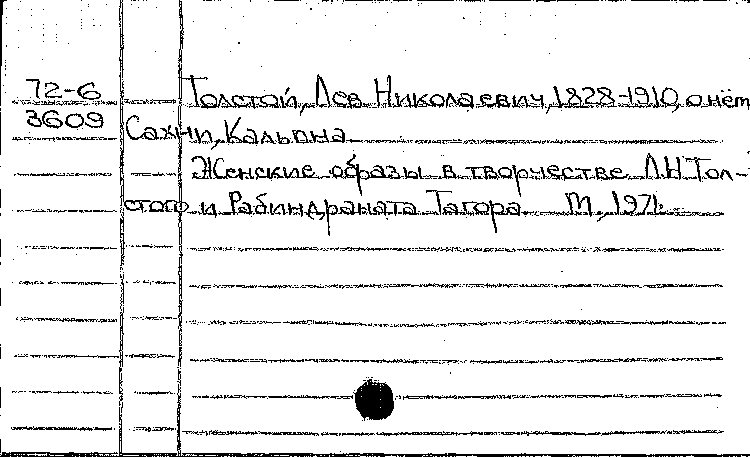 72-6 Толстой, Лев Николаевич, 1828-1910, о нём
3609 Сахни, Кальпна.
Женские образы в творчестве Л.Н.Тол-
стого и Рабиндраната Тагора. М., 1971.